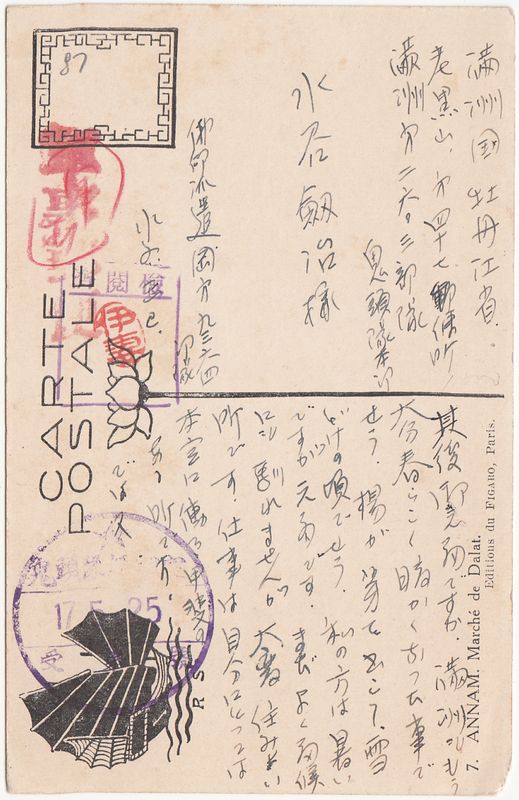 満洲国牡丹江省
老黒山、第四十七軍事郵便所
満洲第二六〇三部隊
鬼頭隊本部
水谷劔治様
佛印派遣岡第九三六四
水谷
其後御元気ですか。満洲ももう
大分春らしく暖かくなった事で
せう。楊が芽を出して、雪
どけの頃でせう。私の方は暑い
ですが元気です。まだよく気候
に馴れませんが大変住みよい
所です。仕事は自分にとっては
本当に働き甲斐の
ある所です。
では又
87
軍事郵便
検閲
伊東
CARTE
POSTALE
17.5.25
受
RS
7. ANNAM. Marché de Dalat.
Editions du FIGARO, Paris.